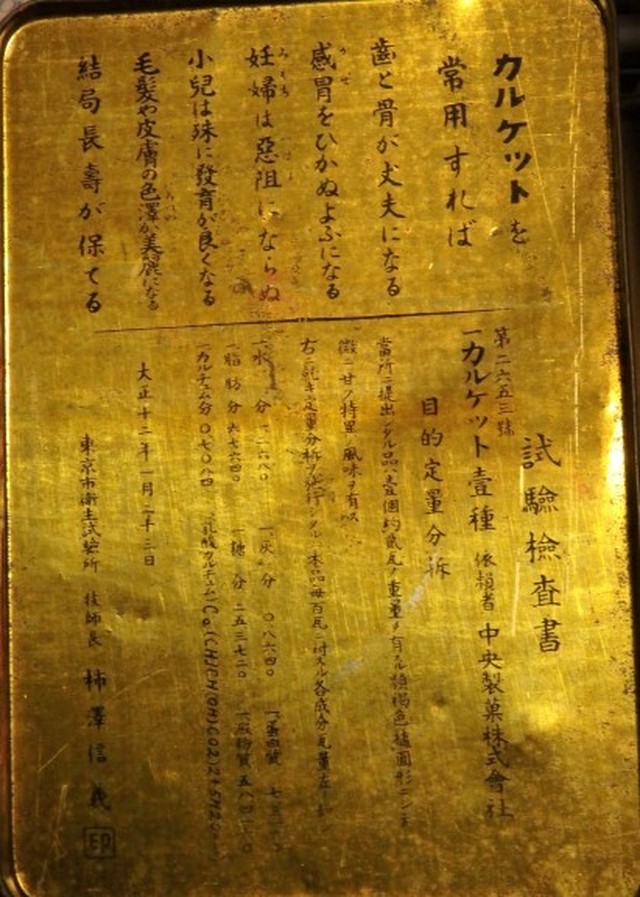 カルケットを
常用すれば
齒と骨が丈夫になる
感冒をひかぬよふになる
妊婦は惡阻にならぬ
小兒は殊に發育が良くなる
毛髮や皮膚の色澤が美麗になる
結局長壽が保てる
試驗檢査書
第二六五三號
一カルケット壹種 依賴者 中央製菓株式會社
目的定量分析
當所ニ提出シタル品ハ壹個約貳瓦ノ重量ヲ有スル 褐色橢圓形ニシテ
微ニ甘ク特異ノ風味ヲ有ス
右ニ就キ定量分析ヲ施行シタル 本品每百瓦ニ對スル各成分ノ瓦量左ノ如シ
一水 分 一灰 分 〇八六四〇 一蛋白質
一脂肪分 六七六四〇 一糖 分 二五三七二〇 一澱粉質
一カルチュム分 〇七〇八四
大正十二年一月二十三日
東京市衛生試驗所 技師長 柿澤信義 印